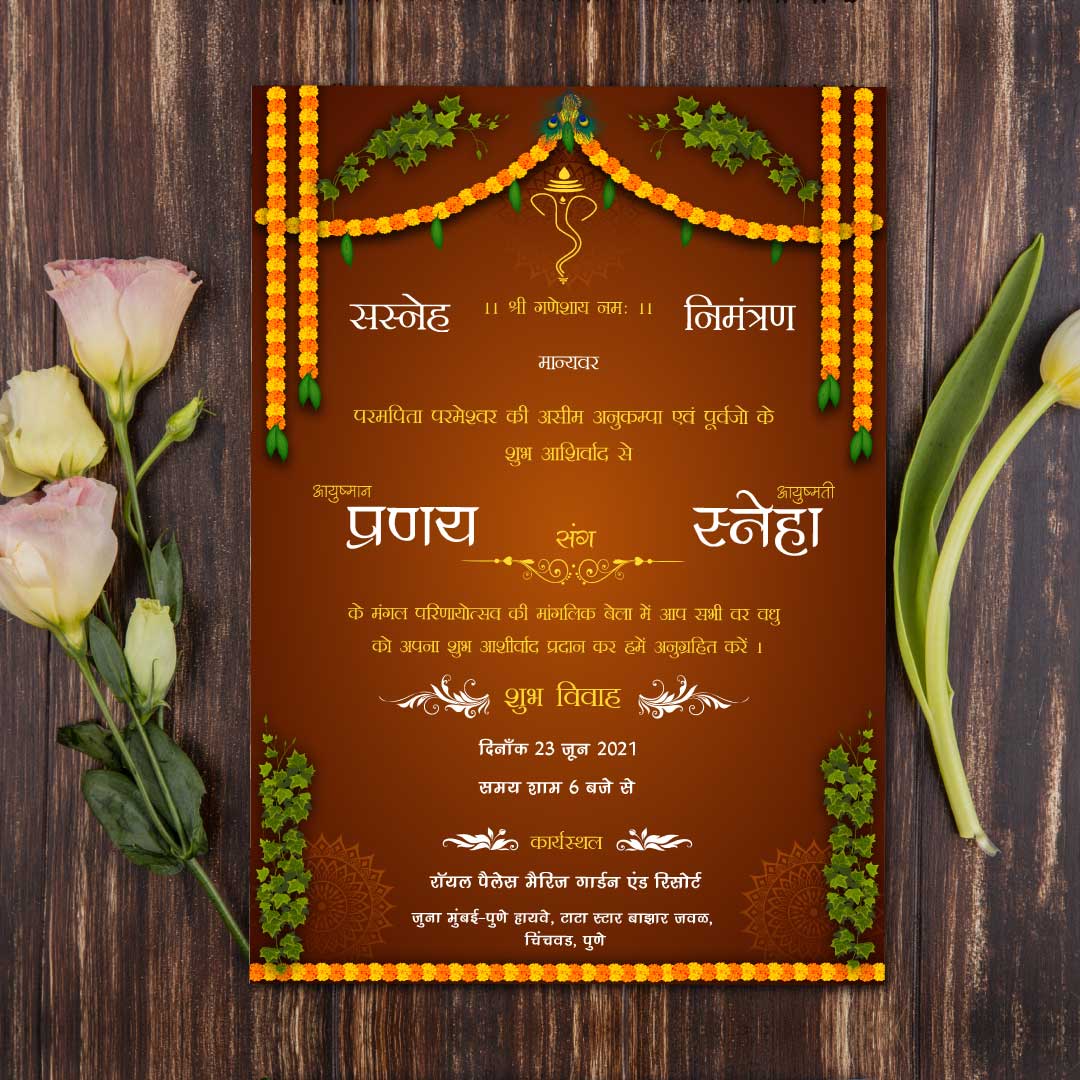 ।। श्री गणेशाय नमः ।।
सस्नेह निमंत्रण
मान्यवर
परमपिता परमेश्वर की असीम अनुकम्पा एवं पूर्वजो के
शुभ आशिर्वाद से
आयुष्मान आयुष्मती
प्रणय संग स्नेहा
के मंगल परिणायोत्सव की मांगलिक बेला में आप सभी वर वधु
को अपना शुभ आशीर्वाद प्रदान कर हमें अनुग्रहित करें ।
शुभ विवाह
दिनाँक 23 जून 2021
समय शाम 6 बजे से
कार्यस्थल
रॉयल पैलेस मैरिज गार्डन एंड रिसोर्ट
जुना मुंबई-पुणे हायवे, टाटा स्टार बाझार जवळ,
चिंचवड, पुणे